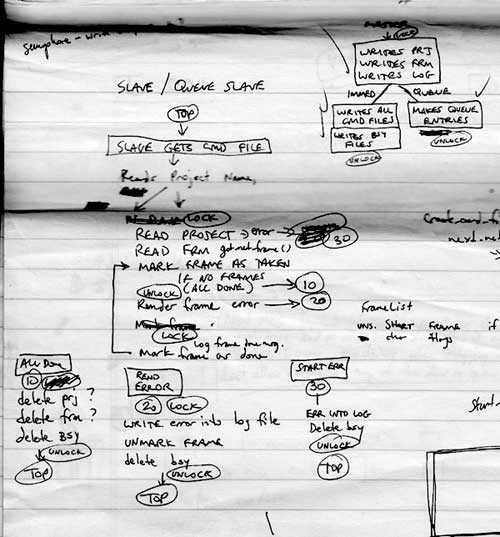 MASTER
LOCK
semaphore - write
WRITES PRJ
WRITES FRM
WRITES LOG
IMMED QUEUE
WRITES ALL
CMD FILES
WRITES BSY
FILES
UNLOCK
MAKES QUEUE
ENTRIES
UNLOCK
SLAVE / QUEUE SLAVE
TOP
SLAVE GETS CMD FILE
Reads Project Name,
LOCK
READ PROJECT → error → 30
READ FRM getnetframe()
MARK FRAME AS TAKEN
IF NO FRAMES
(ALL DONE) → 10
UNLOCK
Render frame error → 20
Mark frame
LOCK
Log frame
Mark frame as done
FrameList
uns. SHORT FRAME if
char flags
ALL DONE
10
delete prj ?
delete frm ?
delete BSY
UNLOCK
TOP
REND
ERROR
20 LOCK
WRITE error into log file
UNMARK FRAME
delete bsy
UNLOCK
TOP
START ERR
30
ERR INTO LOG
Delete bsy
UNLOCK
TOP
Start